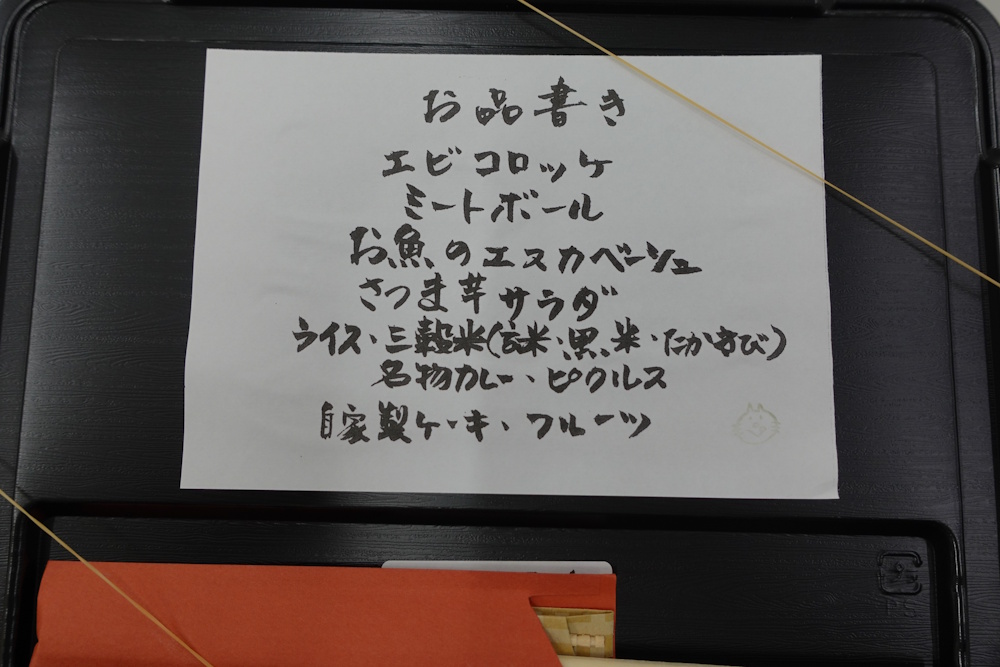 お品書き
エビコロッケ
ミートボール
お魚のエスカベーシュ
さつま芋サラダ
ライス・三穀米(玄米・黒米・たかきび)
名物カレー・ピクルス
自家製ケーキ・フルーツ
PS